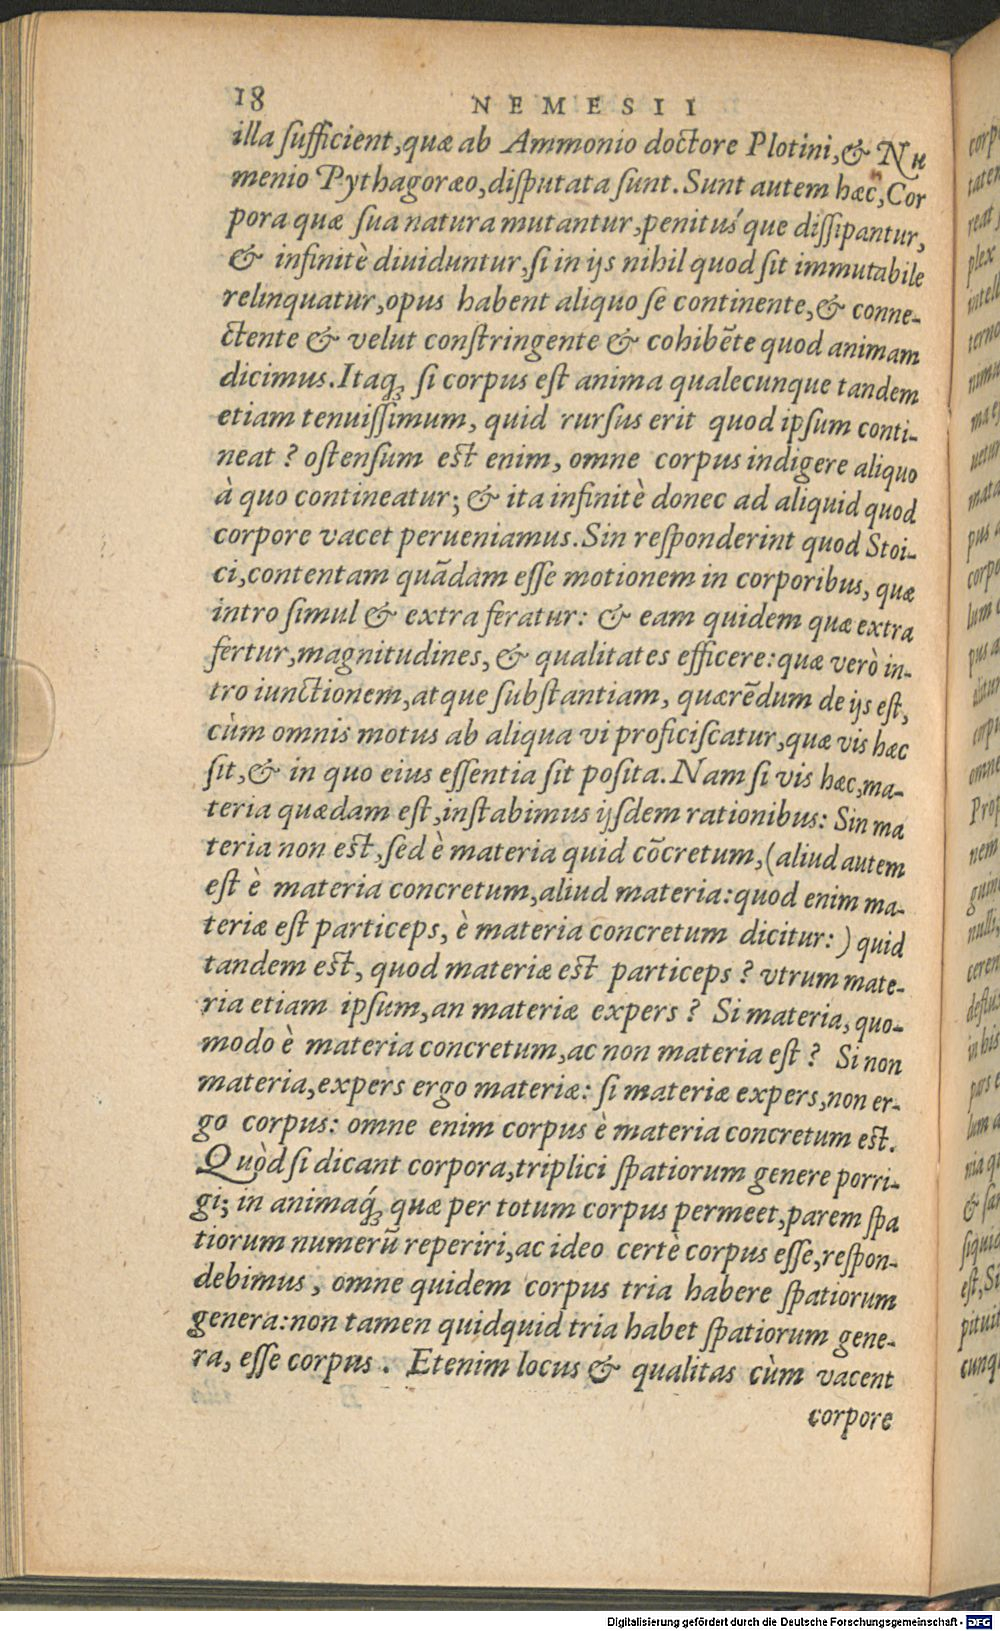 18 NEMESII
illa ſufficient, quæ ab Ammonio doctore Plotini, & Nu
menio Pythagoræo, diſputata ſunt. Sunt autem hæc, Cor
pora quæ ſua natura mutantur, penituśque diſſipantur,
& infinitè diuiduntur, ſi in ijs nihil quod ſit immutabile
relinquatur, opus habent aliquo ſe continente, & conne-
ctente & velut conſtringente & cohibēte quod animam
dicimus. Itaq; ſi corpus eſt anima qualecunque tandem
etiam tenuiſſimum, quid rurſus erit quod ipſum conti-
neat? oſtenſum eſt enim, omne corpus indigere aliquo
à quo contineatur; & ita infinitè donec ad aliquid quod
corpore vacet perueniamus. Sin reſponderint quod Stoi-
ci, contentam quādam eſſe motionem in corporibus, quæ
intro ſimul & extra feratur: & eam quidem quæ extra
fertur, magnitudines, & qualitates efficere: quæ verò in-
tro iunctionem, atque ſubſtantiam, quærēdum de ijs eſt,
cùm omnis motus ab aliqua vi proficiſcatur, quæ vis hæc
ſit, & in quo eius eſſentia ſit poſita. Nam ſi vis hæc, ma-
teria quædam eſt, inſtabimus ijſdem rationibus: Sin ma
teria non eſt, ſed è materia quid cōcretum, (aliud autem
eſt è materia concretum, aliud materia: quod enim ma-
teriæ eſt particeps, è materia concretum dicitur:) quid
tandem eſt, quod materiæ eſt particeps? vtrum mate-
ria etiam ipſum, an materiæ expers? Si materia, quo-
modo è materia concretum, ac non materia eſt? Si non
materia, expers ergo materiæ: ſi materiæ expers, non er-
go corpus: omne enim corpus è materia concretum eſt.
Quòd ſi dicant corpora, triplici ſpatiorum genere porri-
gi; in animaq́; quæ per totum corpus permeet, parem ſpa
tiorum numerū reperiri, ac ideo certè corpus eſſe, reſpon-
debimus, omne quidem corpus tria habere ſpatiorum
genera: non tamen quidquid tria habet ſpatiorum gene-
ra, eſſe corpus. Etenim locus & qualitas cùm vacent
corpore
Digitalisierung gefördert durch die Deutsche Forschungsgemeinschaft - DFG